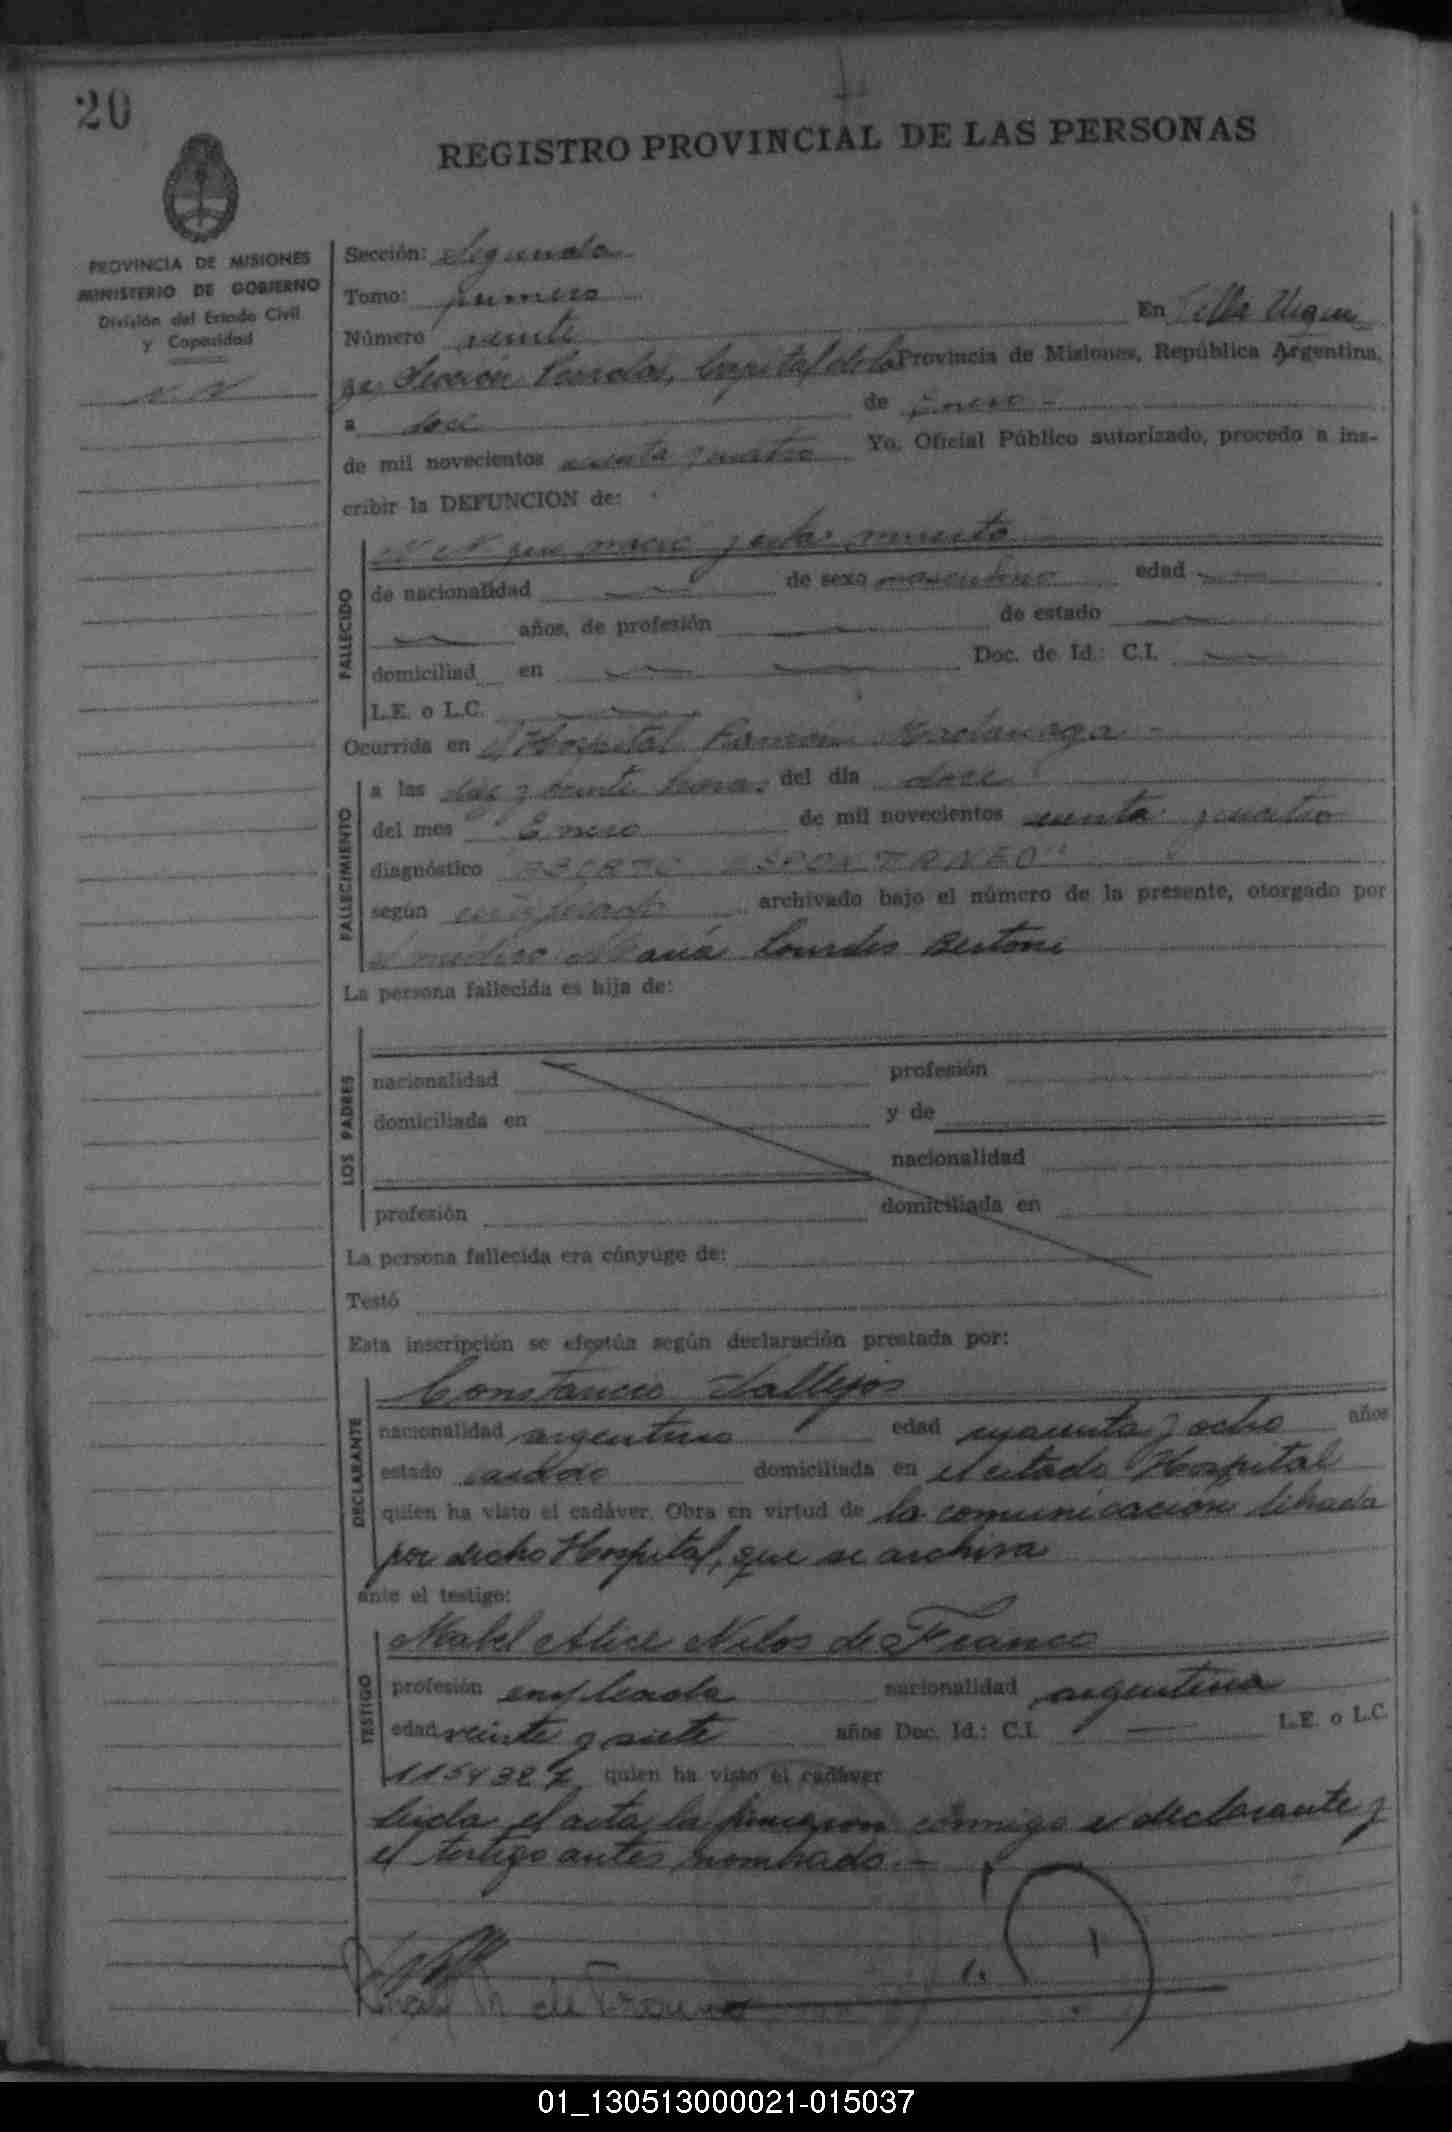 20
REGISTRO PROVINCIAL DE LAS PERSONAS
PROVINCIA DE MISIONES
MINISTERIO DE GOBIERNO
División del Estado Civil
y Capacidad
N. N
Sección: Segunda
Tomo: primero
Número veinte
En Villa Urqui
za Sección Posadas, Capital de la Provincia de Misiones, República Argentina,
a doce de Enero -
de mil novecientos y cuatro Yo, Oficial Público autorizado, procedo a ins-
cribir la DEFUNCION de:
FALLECIDO
N N que nació y esta muerto
de nacionalidad de sexo masculino edad
años, de profesión de estado
domiciliad en Doc. de Id.: C.I.
L.E. o L.C.
Ocurrida en el Hospital Ramón Madariaga -
FALLECIMIENTO
a las diez y veinte horas del día doce
del mes Enero de mil novecientos y cuatro
diagnóstico "ABORTO ESPONTANEO"
según certificado archivado bajo el número de la presente, otorgado por
el médico María Lourdes Bertoni
La persona fallecida es hija de:
LOS PADRES
nacionalidad profesión
domiciliada en y de
nacionalidad
profesión domiciliada en
La persona fallecida era cónyuge de:
Testó
Esta inscripción se efectúa según declaración prestada por:
DECLARANTE
Constancio Vallejos
nacionalidad argentino edad y ocho años
estado casado domiciliada en el citado Hospital
quien ha visto el cadáver. Obra en virtud de la comunicación librada
por dicho Hospital, que se archiva
ante el testigo:
TESTIGO
Mabel Alice de Franco
profesión empleada nacionalidad argentina
edad veinte y siete años Doc. Id.: C.I. L.E. o L.C.
quien ha visto el cadáver
Leída el acta la firmaron conmigo el declarante y
el testigo antes nombrado.-
de Franco
01_130513000021-015037